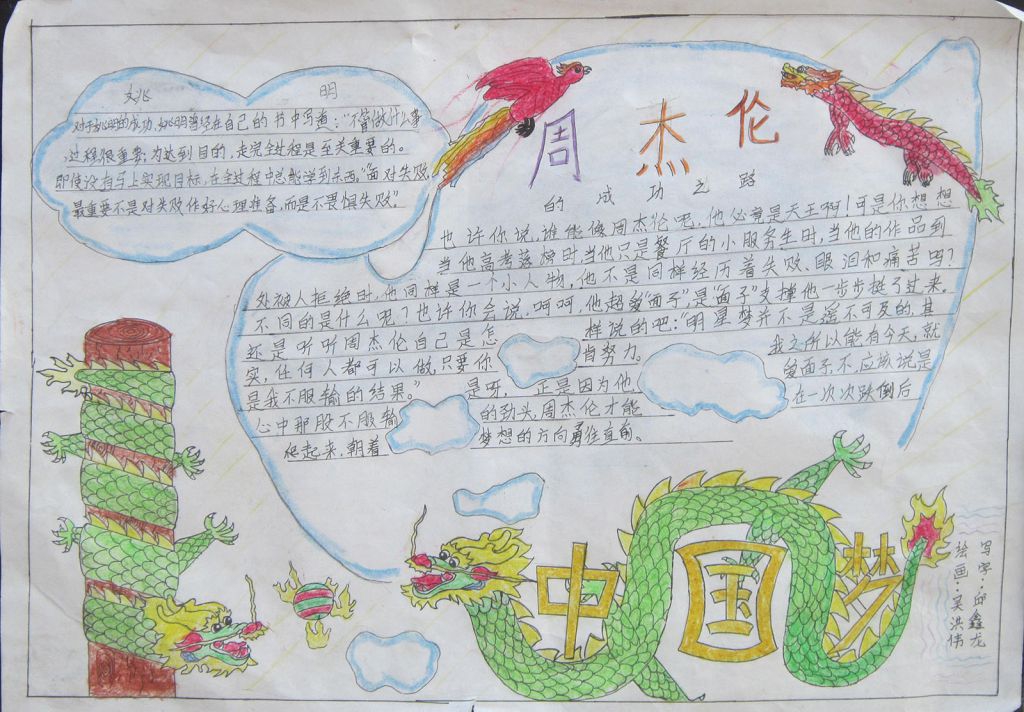 姚 明
对于姚明的成功,姚明曾经在自己的书中写道:“不管做什么事
,过程很重要;为达到目的,走完全过程是至关重要的。
即使没有马上实现目标,在全过程中总能学到东西。”面对失败,
最重要不是对失败作好心理准备,而是不畏惧失败”。
周杰伦
的成功之路
也许你说,谁能像周杰伦呢,他必竟是天王啊!可是你想想
当他高考落榜时,当他只是餐厅的小服务生时,当他的作品到
处被人拒绝时,他同样是一个小人物,他不是同样经历着失败、眼泪和痛苦吗?
不同的是什么呢?也许你会说,呵呵,他超爱“面子”,是“面子”支撑他一步步挺了过来,
还是听听周杰伦自己是怎 样说的吧:“明星梦并不是遥不可及的,其
实,任何人都可以做,只要你 肯努力。 我之所以能有今天,就
是我不服输的结果。” 是呀, 正是因为他 爱面子,不,应该说是
心中那股不服输 的劲头,周杰伦才能 在一次次跌倒后
爬起来,朝着 梦想的方向勇往直前。
中国梦
写字:邱鑫龙
绘画:吴洪伟